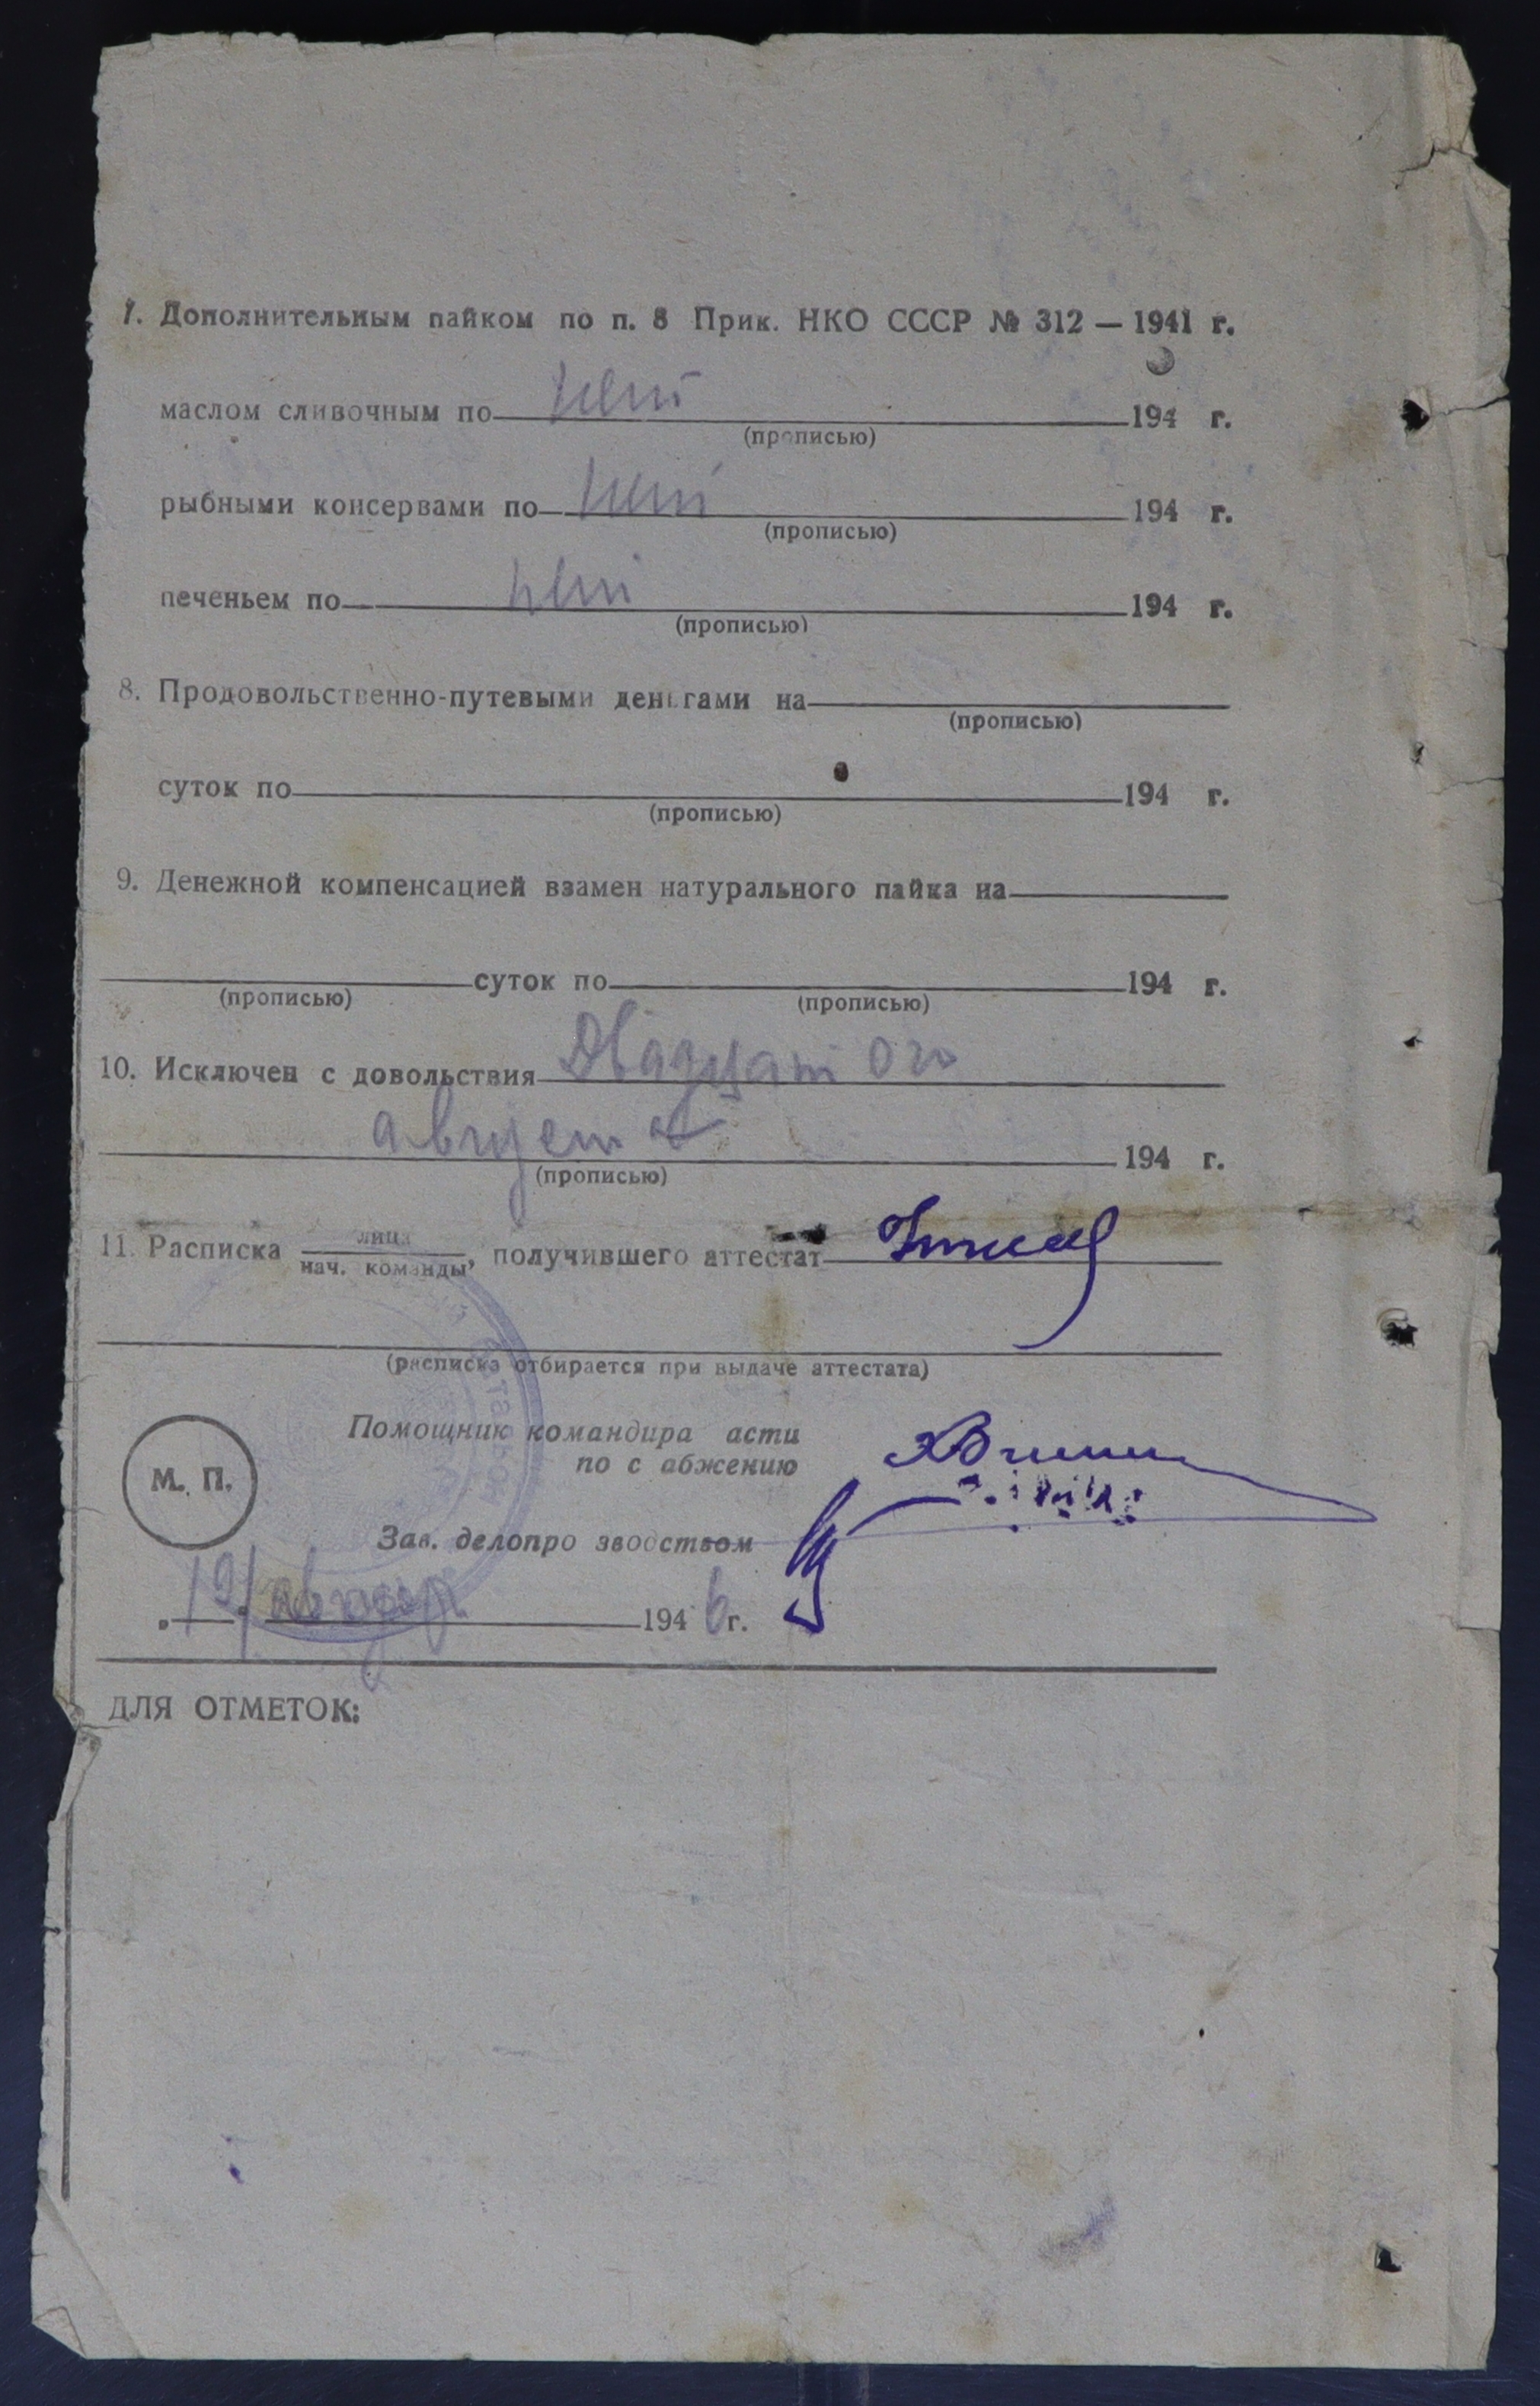 7. Дополнительным пайком по п. 8 Прик. НКО СССР № 312 — 1941 г.
маслом сливочным по нет 194 г.
(прописью)
рыбными консервами по нет 194 г.
(прописью)
печеньем по нет 194 г.
(прописью)
8. Продовольственно-путевыми деньгами на
(прописью)
суток по 194 г.
(прописью)
9. Денежной компенсацией взамен натурального пайка на
суток по 194 г.
(прописью) (прописью)
10. Исключен с довольствия Двадцатого
августа 194 г.
(прописью)
11. Расписка лица
нач. команды, получившего аттестат
(расписка отбирается при выдаче аттестата)
Помощник командира асти
по с абжению
М. П.
Зав. делопро зводством
19 августа 1946 г.
ДЛЯ ОТМЕТОК: